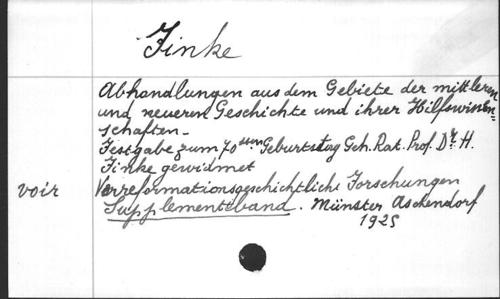 Finke
Abhandlungen aus dem Gebiete der mittleren
und neueren Geschichte und ihrer Hilfswissen=
schaften_
Festgabe zum 70sten Geburtstag Geh. Rat. Prof. Dr. H.
Finke gewidmet
voir Vorreformationsgeschichtliche Forschungen
Supplementband. Münster Aschendorf
1925